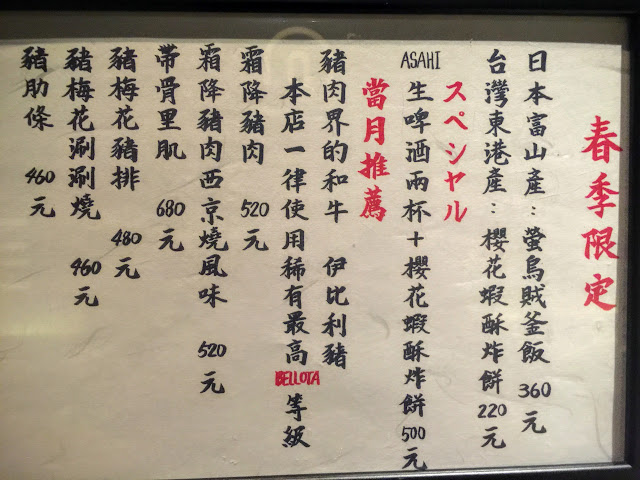 春季限定
日本富山產:螢烏賊釜飯 360元
台灣東港產:櫻花蝦酥炸餅 220元
スペシャル
ASAHI 生啤酒兩杯+櫻花蝦酥炸餅 500元
當月推薦
豬肉界的和牛 伊比利豬
本店一律使用稀有最高BELLOTA等級
霜降豬肉 520元
霜降豬肉西京燒風味 520元
帶骨里肌 680元
豬梅花豬排 480元
豬梅花涮涮燒 460元
豬肋條 460元